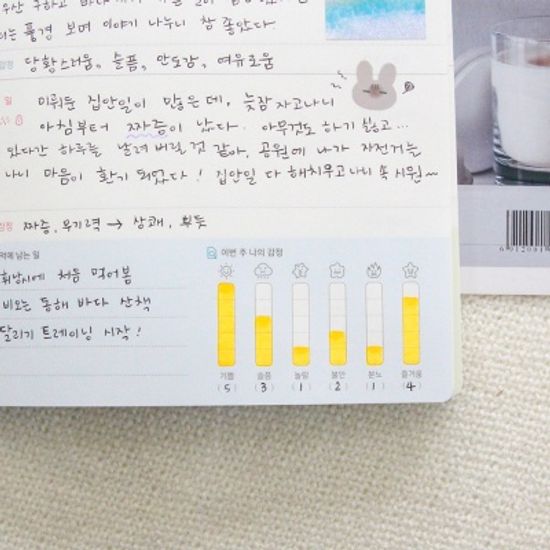 우산 구하고 바다
는 풍경 보며 이야기 나누니 참 좋았다.
감정 당황스러움, 슬픔, 안도감, 여유로움
일 미뤄둔 집안일이 많은데, 늦잠 자고나니
아침부터 짜증이 났다. 아무것도 하기 싫고...
있다간 하루를 날려버릴 것 같아, 공원에 나가 자전거를
나니 마음이 환기 되었다! 집안일 다 해치우고나니 속 시원~
감정 짜증, 무기력 → 상쾌, 뿌듯
억에 남는 일
처음 먹어봄
비오는 동해 바다 산책
달리기 트레이닝 시작!
이번 주 나의 감정
기쁨 슬픔 놀람 불안 분노 즐거움
(5) (3) (1) (2) (1) (4)